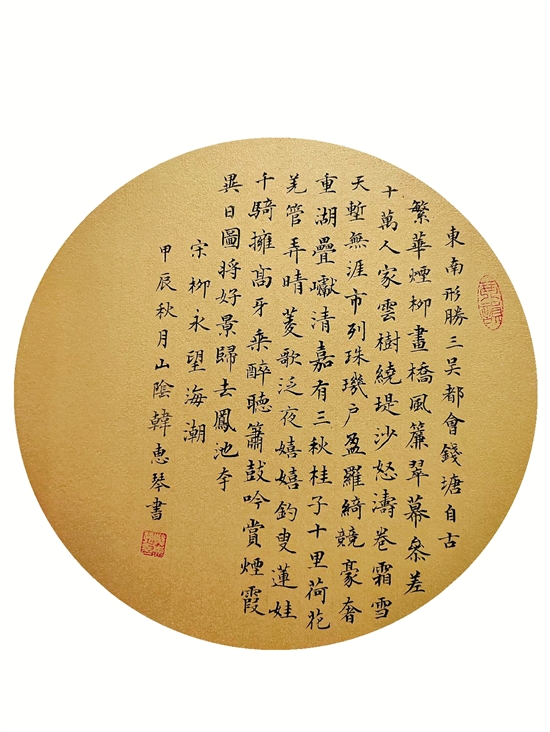 東南形勝三吴都會錢塘自古
繁華煙柳畫橋風簾翠幕叅差
十萬人家雲樹繞堤沙怒濤卷霜雪
天塹無涯市列珠璣户盈羅綺競豪奢
重湖疊巘清嘉有三秋桂子十里荷花
羌管弄晴菱歌泛夜嬉嬉釣叟蓮娃
千騎擁髙牙乘醉聽簫鼓吟賞煙霞
異日圖将好景歸去鳳池夸
宋柳永望海潮
甲辰秋月山陰韓惠琴書